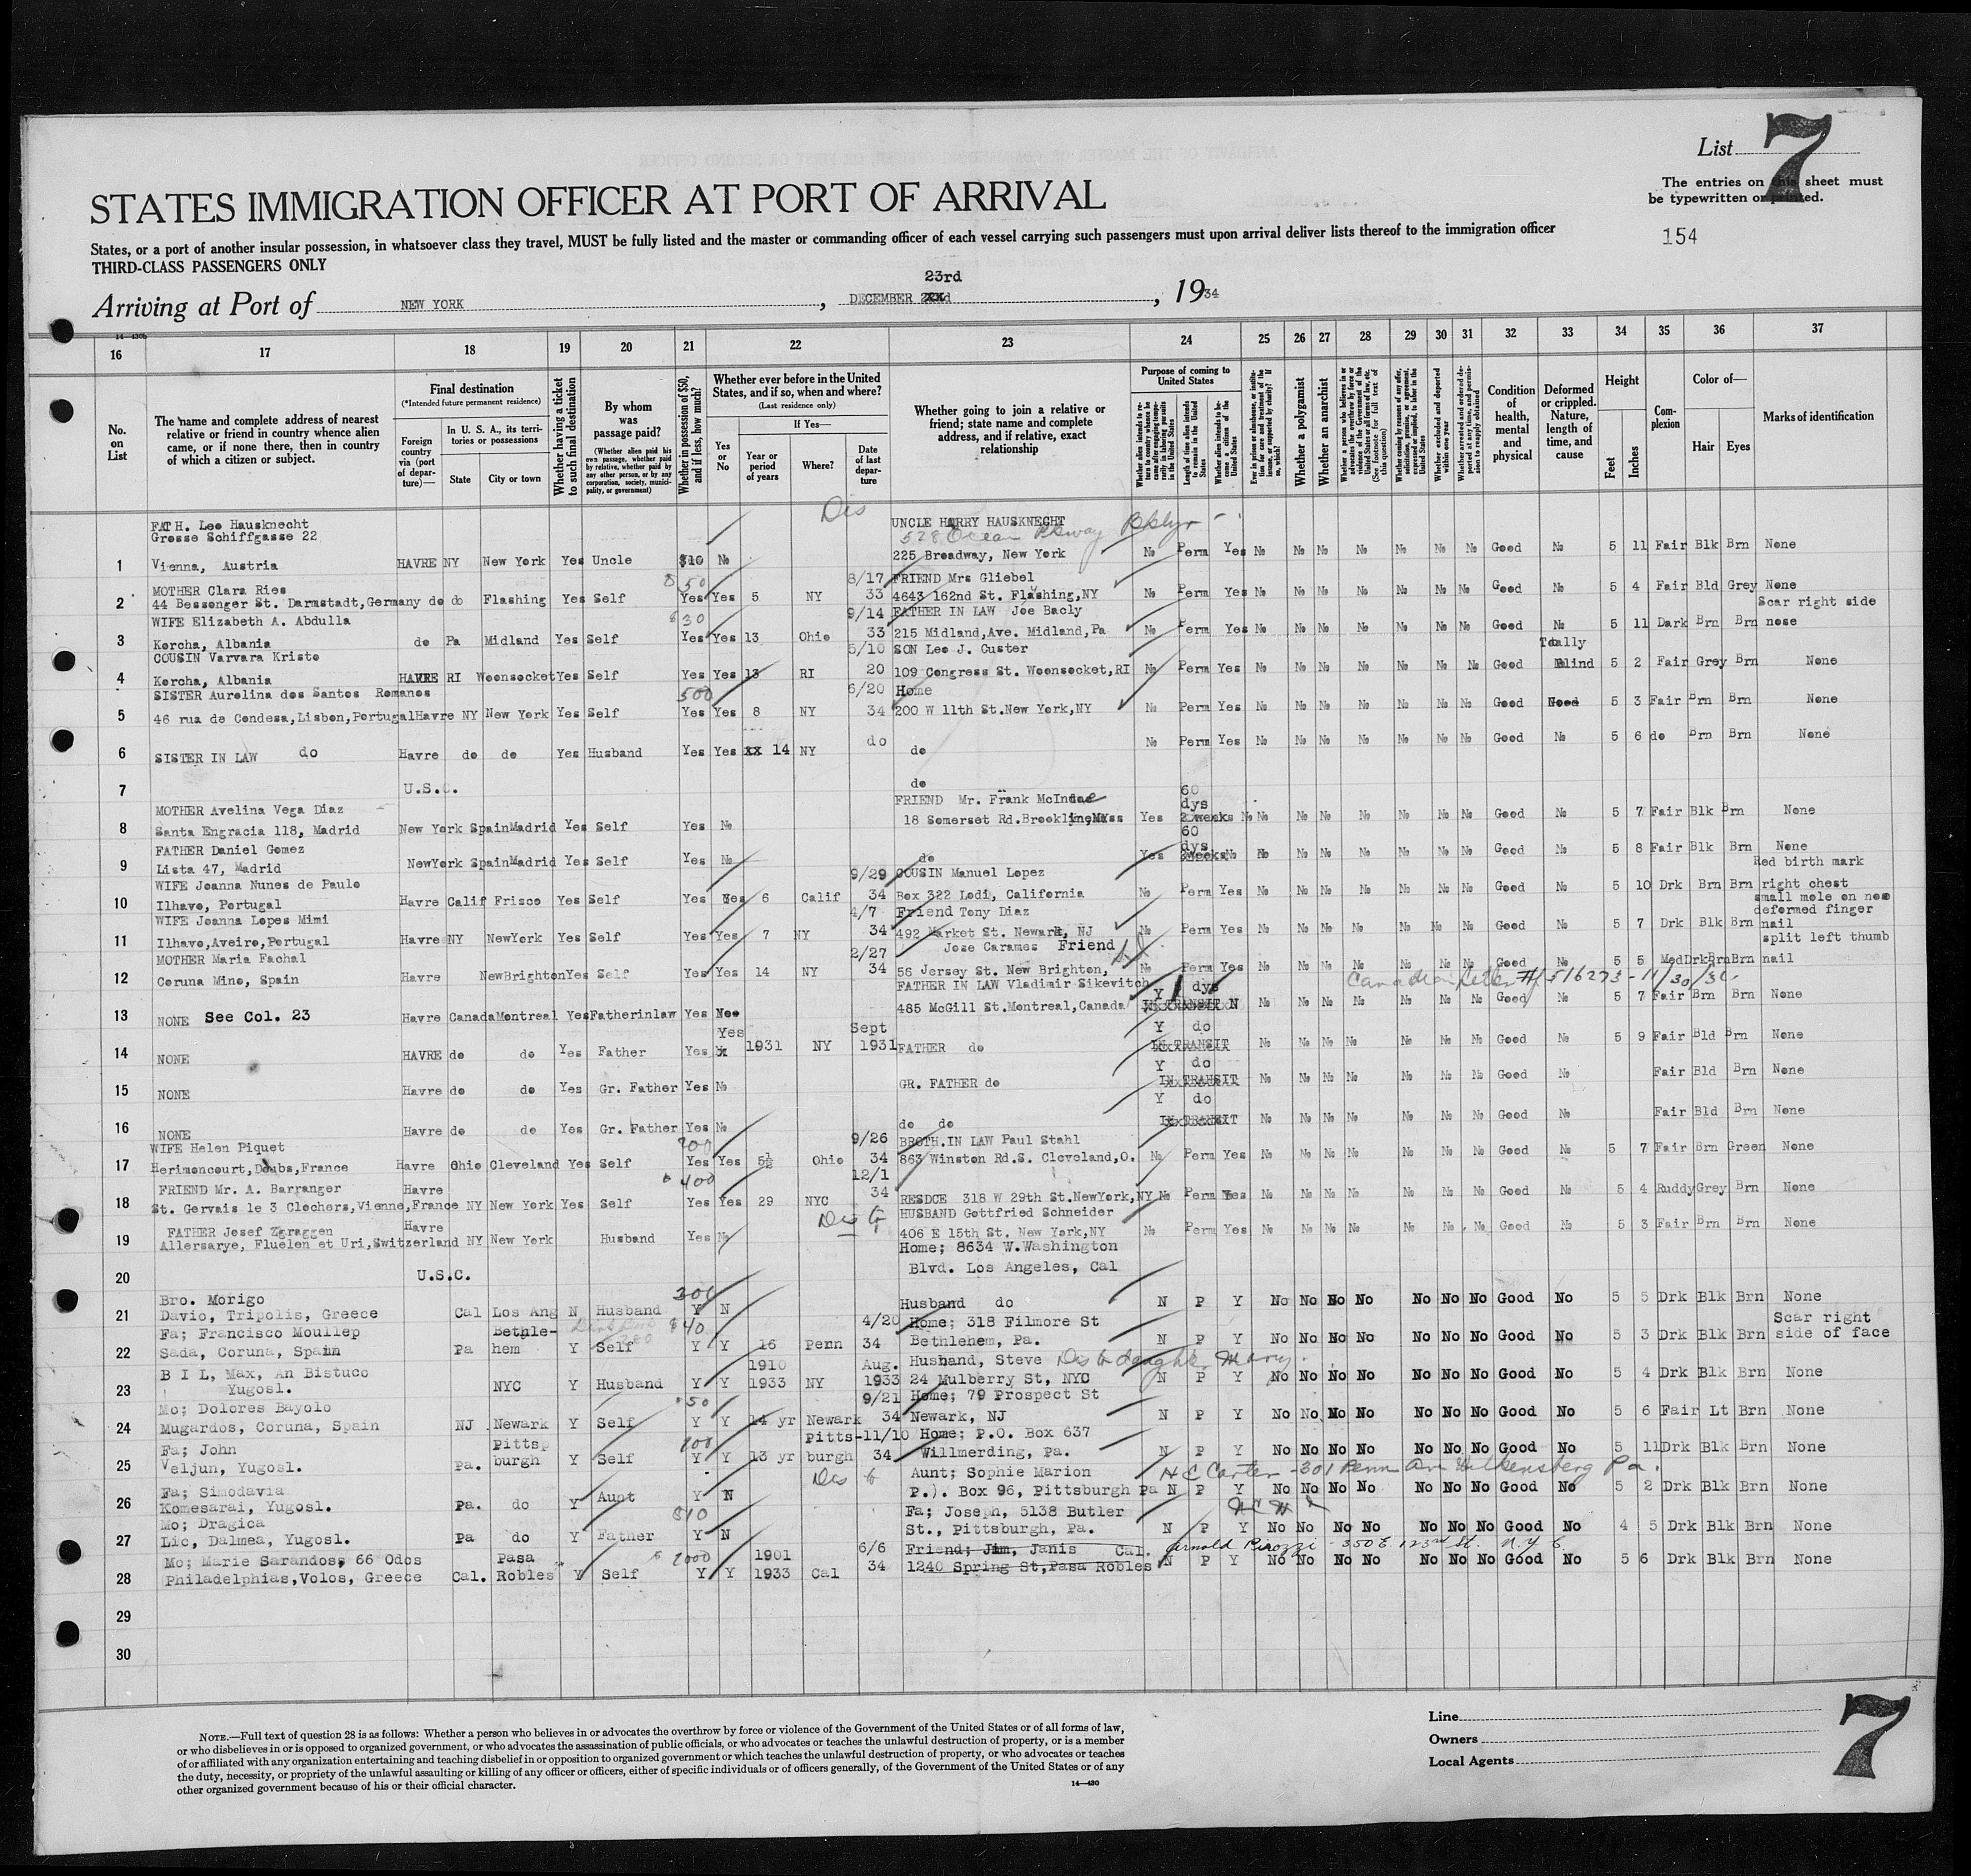 List 7
The entries on this sheet must
be typewritten or printed.
154
STATES IMMIGRATION OFFICER AT PORT OF ARRIVAL
States, or a port of another insular possession, in whatsoever class they travel, MUST be fully listed and the master or commanding officer of each vessel carrying such passengers must upon arrival deliver lists thereof to the immigration officer
THIRD-CLASS PASSENGERS ONLY
23rd
Arriving at Port of NEW YORK, DECEMBER, 1934
14-430b
16 17 18 19 20 21 22 23 24 25 26 27 28 29 30 31 32 33 34 35 36 37
No. on List
The name and complete address of nearest relative or friend in country whence alien came, or if none there, then in country of which a citizen or subject.
Final destination
(*Intended future permanent residence)
Foreign country via (port of departure)—
In U. S. A., its territories or possessions
State
City or town
Whether having a ticket to such final destination
By whom was passage paid?
(Whether alien paid his own passage, whether paid by relative, whether paid by any other person, or by any corporation, society, municipality, or government)
Whether in possession of $50, and if less, how much?
Whether ever before in the United States, and if so, when and where?
(Last residence only)
Yes or No
If Yes—
Year or period of years
Where?
Date of last departure
Whether going to join a relative or friend; state name and complete address, and if relative, exact relationship
Purpose of coming to United States
Whether alien intends to return to country whence he came after engaging temporarily in laboring pursuits in the United States
Length of time alien intends to remain in the United States
Whether alien intends to become a citizen of the United States
Ever in prison or almshouse, or institution for care and treatment of the insane, or supported by charity? If so, which?
Whether a polygamist
Whether an anarchist
(See footnote for full text of this question)
Whether excluded and deported within one year
Condition of health, mental and physical
Deformed or crippled. Nature, length of time, and cause
Height
Feet
Inches
Complexion
Color of—
Hair
Eyes
Marks of identification
Dis
FATH. Leo Hausknecht UNCLE HARRY HAUSKNECHT
Grosse Schiffgasse 22 528 Ocean Pkway Bklyn
1 Vienna, Austria HAVRE NY New York Yes Uncle $10 No 225 Broadway, New York No Perm Yes No No No No No No No Good No 5 11 Fair Blk Brn None
MOTHER Clara Ries 50 8/17 FRIEND Mrs Gliebel
2 44 Bessonger St. Darmstadt,Germany do do Flashing Yes Self Yes Yes 5 NY 33 4643 162nd St. Flashing,NY No Perm Yes No No No No No No No Good No 5 4 Fair Bld Grey None
WIFE Elizabeth A. Abdulla 30 9/14 FATHER IN LAW Joe Bacly Scar right side
3 Korcha, Albania do Pa Midland Yes Self Yes Yes 13 Ohio 33 215 Midland,Ave. Midland,Pa No Perm Yes No No No No No No No Good No 5 11 Dark Brn Brn nose
COUSIN Varvara Kristo 5/10 SON Leo J. Custer Totally
4 Korcha, Albania HAVRE RI Woonsocket Yes Self Yes Yes 13 RI 20 109 Congress St. Woonsocket,RI No Perm Yes No No No No No No No Good Blind 5 2 Fair Grey Brn None
SISTER Aurelina dos Santos Romanos 500 6/20 Home
5 46 rua de Condesa,Lisbon,Portugal Havre NY New York Yes Self Yes Yes 8 NY 34 200 W 11th St.New York,NY No Perm Yes No No No No No No No Good 5 3 Fair Brn Brn None
6 SISTER IN LAW do Havre do do Yes Husband Yes Yes xx 14 NY do do No Perm Yes No No No No No No No Good No 5 6 do Brn Brn None
7 U.S.C. do
MOTHER Avelina Vega Diaz FRIEND Mr. Frank McIndoe 60 dys
8 Santa Engracia 118, Madrid New York Spain Madrid Yes Self Yes No 18 Somerset Rd.Brookline,Mass Yes 2 weeks No No No No No No No No Good No 5 7 Fair Blk Brn None
FATHER Daniel Gomez 60 dys
9 Lista 47, Madrid NewYork Spain Madrid Yes Self Yes No do Yes 2weeks No No No No No No No No Good No 5 8 Fair Blk Brn None
WIFE Joanna Nunes de Paulo 9/29 COUSIN Manuel Lopez Red birth mark
10 Ilhavo, Portugal Havre Calif Frisco Yes Self Yes Yes 6 Calif 34 Box 322 Lodi, California No Perm Yes No No No No No No No Good No 5 10 Drk Brn Brn right chest
small mole on nose
WIFE Joanna Lopes Mimi 4/7 Friend Tony Diaz deformed finger
11 Ilhavo,Aveiro,Portugal Havre NY NewYork Yes Self Yes Yes 7 NY 34 492 Market St. Newark, NJ No Perm Yes No No No No No No No Good No 5 7 Drk Blk Brn nail
MOTHER Maria Fachal 2/27 Jose Carames Friend split left thumb
12 Coruna Mino, Spain Havre NewBrighton Yes Self Yes Yes 14 NY 34 56 Jersey St. New Brighton, No Perm Yes No No No No No No No Good No 5 5 Med DrkBrn Brn nail
FATHER IN LAW Vladimir Sikevitch Y dys Canadian letter # 516273 - 11/30/34
13 NONE See Col. 23 Havre Canada Montreal Yes Fatherinlaw Yes 485 McGill St.Montreal,Canada IN TRANSIT N No No No No No No No Good No 5 7 Fair Brn Brn None
Yes Sept Y do
14 NONE HAVRE do do Yes Father Yes 1931 NY 1931 FATHER do IN TRANSIT No No No No No No No Good No 5 9 Fair Bld Brn None
Y do
15 NONE Havre do do Yes Gr. Father Yes No GR. FATHER do IN TRANSIT No No No No No No No Good No Fair Bld Brn None
Y do
16 NONE Havre do do Yes Gr. Father Yes No do do IN TRANSIT No No No No No No No Good No Fair Bld Brn None
WIFE Helen Piquet 200 9/26 BROTH.IN LAW Paul Stahl
17 Herimoncourt,Doubs,France Havre Ohio Cleveland Yes Self Yes Yes 5½ Ohio 34 863 Winston Rd.S. Cleveland,O. No Perm Yes No No No No No No No Good No 5 7 Fair Brn Green None
FRIEND Mr. A. Barranger Havre 400 12/1
18 St. Gervais le 3 Clochers,Vienne,France NY New York Yes Self Yes Yes 29 NYC 34 RESDCE 318 W 29th St.NewYork,NY No Perm Yes No No No No No No No Good No 5 4 Ruddy Grey Brn None
FATHER Josef Zgraggen Havre Dis HUSBAND Gottfried Schneider
19 Allersarye, Fluelen et Uri,Switzerland NY New York Husband Yes No 406 E 15th St. New York,NY No Perm Yes No No No No No No No Good No 5 3 Fair Brn Brn None
Home; 8634 W.Washington
20 U.S.C. Blvd. Los Angeles, Cal
Bro. Morigo 300
21 Davio, Tripolis, Greece Cal Los Ang N Husband Y N Husband do N P Y No No No No No No No Good No 5 5 Drk Blk Brn None
Fa; Francisco Moullep Bethle- $40 4/20 Home; 318 Filmore St Scar right
22 Sada, Coruna, Spain Pa hem Y Self Y Y 16 Penn 34 Bethlehem, Pa. N P Y No No No No No No No Good No 5 3 Drk Blk Brn side of face
B I L, Max, An Bistuco 1910 Aug. Husband, Steve Dis to daughter Mary.
23 Yugosl. NYC Y Husband Y Y 1933 NY 1933 24 Mulberry St, NYC N P Y No No No No No No No Good No 5 4 Drk Blk Brn None
Mo; Dolores Bayolo 50 9/21 Home; 79 Prospect St
24 Mugardos, Coruna, Spain NJ Newark Y Self Y Y 14 yr Newark 34 Newark, NJ N P Y No No No No No No No Good No 5 6 Fair Lt Brn None
Fa; John Pittsp Pitts- 11/10 Home; P.O. Box 637
25 Veljun, Yugosl. Pa. burgh Y Self Y Y 13 yr burgh 34 Willmerding, Pa. N P Y No No No No No No No Good No 5 11 Drk Blk Brn None
Fa; Simodavia Dis to Aunt; Sophie Marion H C Carter - 301 Penn Ave Wilkensberg Pa.
26 Komesarai, Yugosl. Pa. do Y Aunt Y N P.). Box 96, Pittsburgh Pa N P Y No No No No No No No Good No 5 2 Drk Blk Brn None
Mo; Dragica $10 Fa; Joseph, 5138 Butler
27 Lic, Dalmea, Yugosl. Pa do Y Father Y N St., Pittsburgh, Pa. N P Y No No No No No No No Good No 4 5 Drk Blk Brn None
Mo; Marie Sarandos, 66 Odos Pasa 2000 1901 6/6 Friend; Jim, Janis Cal. Arnold Perozzi - 350 E 123rd St. N.Y.C.
28 Philadelphias,Volos, Greece Cal. Robles Y Self Y Y 1933 Cal 34 1240 Spring St,Pasa Robles N P Y No No No No No No No Good No 5 6 Drk Blk Brn None
29
30
NOTE.—Full text of question 28 is as follows: Whether a person who believes in or advocates the overthrow by force or violence of the Government of the United States or of all forms of law,
or who disbelieves in or is opposed to organized government, or who advocates the assassination of public officials, or who advocates or teaches the unlawful destruction of property, or is a member
of or affiliated with any organization entertaining and teaching disbelief in or opposition to organized government or which teaches the unlawful destruction of property, or who advocates or teaches
the duty, necessity, or propriety of the unlawful assaulting or killing of any officer or officers, either of specific individuals or of officers generally, of the Government of the United States or of any
other organized government because of his or their official character.
14-430
Line
Owners
Local Agents
7